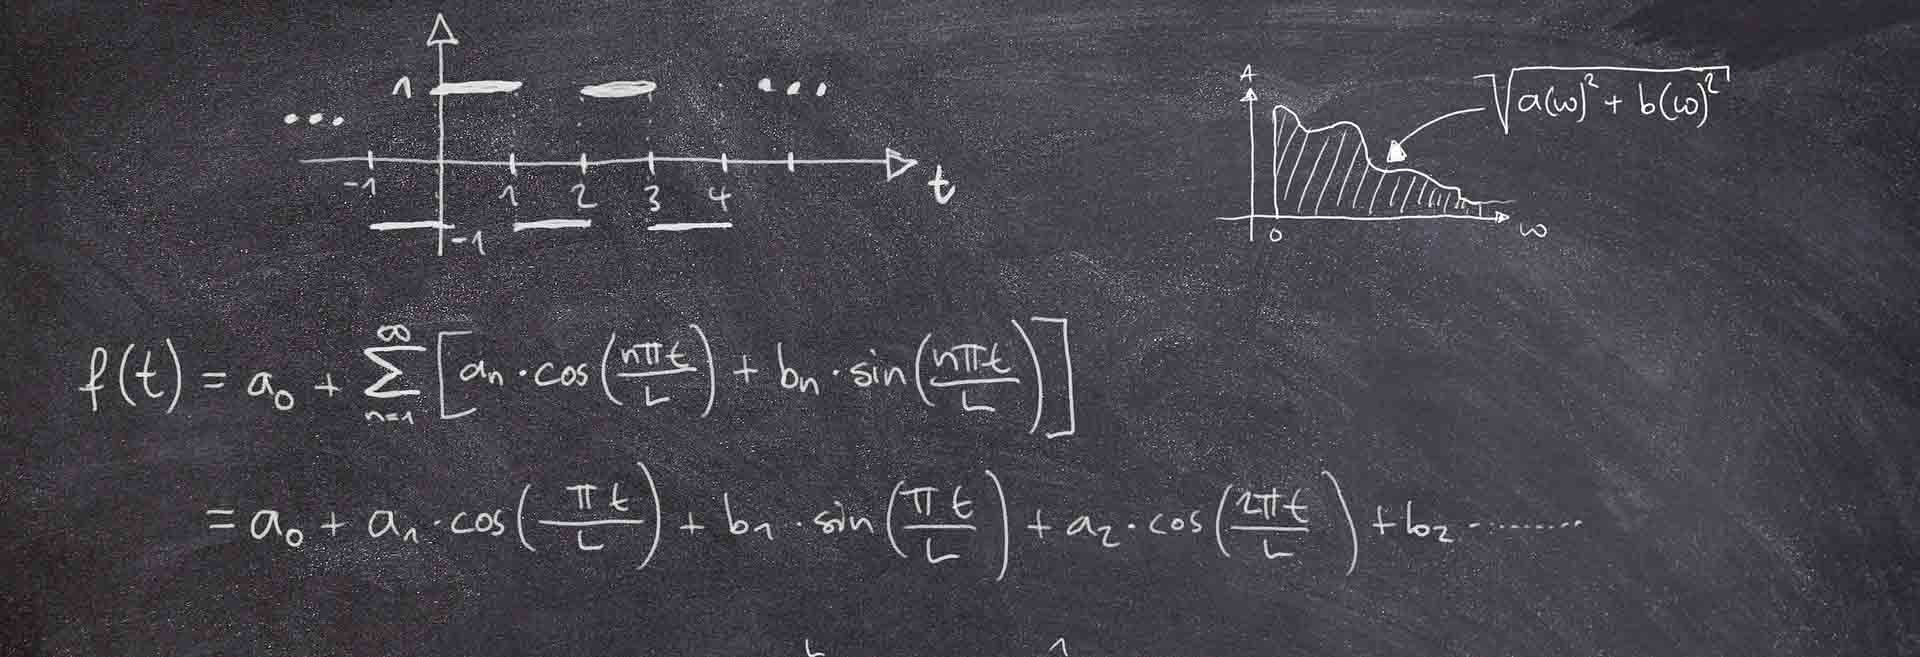 1
...
...
-1 1 2 3 4 t
-1
A
√(a(ω)² + b(ω)²)
0 ω
f(t) = a₀ + ∑ₙ₌₁^∞ [aₙ · cos(nπt/L) + bₙ · sin(nπt/L)]
= a₀ + a₁ · cos(πt/L) + b₁ · sin(πt/L) + a₂ · cos(2πt/L) + b₂ ·········